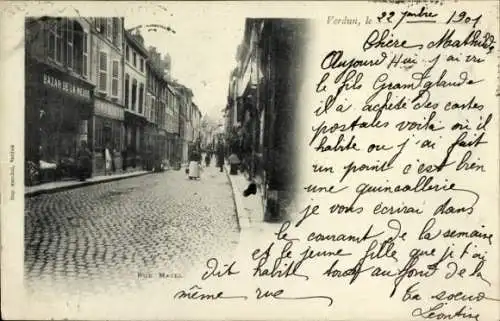 Verdun, le 22 1901
Chère Mathilde
Aujourd'hui j'ai vu
le fils Grandglaude
il a acheté des cartes
postales voilà où il
habite ou j'ai fait
un point c'est
une quincaillerie
je vous écrirai dans
le courant de la semaine
et le jeune fille que je t'ai
dit habite tout au fond de la
même rue
Ta soeur
Léontine
BAZAR DE LA MEUSE
RUE MAZEL